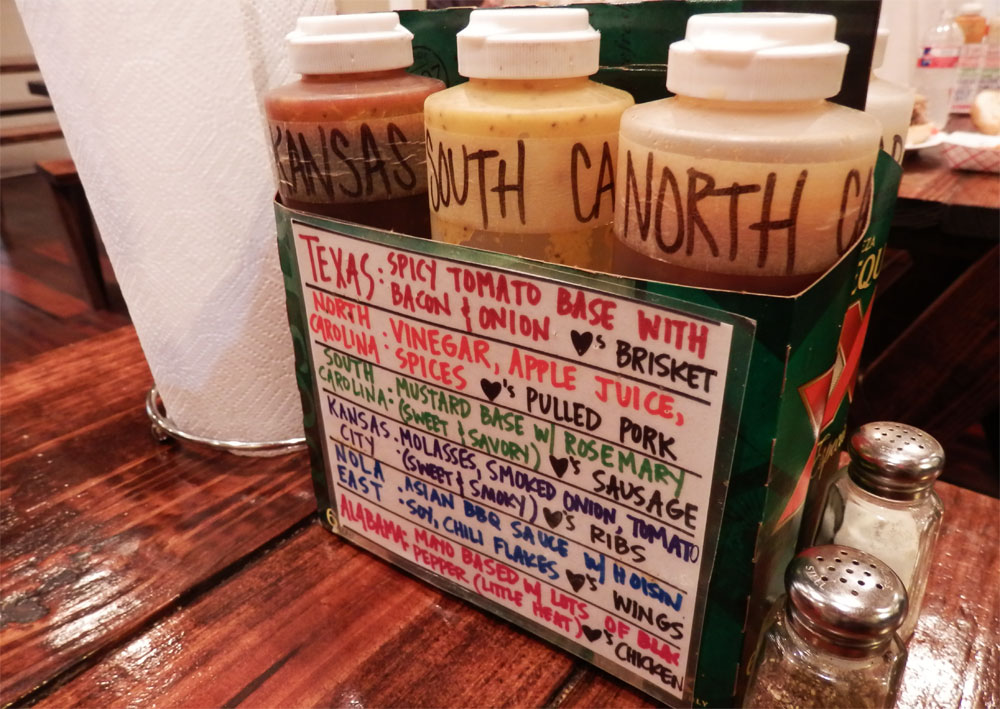 KANSAS
SOUTH CA
NORTH CA
TEXAS: SPICY TOMATO BASE WITH
BACON & ONION ♥'s BRISKET
NORTH
CAROLINA: VINEGAR, APPLE JUICE,
SPICES ♥'s PULLED PORK
SOUTH
CAROLINA: MUSTARD BASE W/ ROSEMARY
(SWEET & SAVORY) ♥'s SAUSAGE
KANSAS
CITY: MOLASSES, SMOKED ONION, TOMATO
(SWEET & SMOKY) ♥'s RIBS
NOLA
EAST: ASIAN BBQ SAUCE W/ HOISIN
SOY, CHILI FLAKES ♥'s WINGS
ALABAMA: MAYO BASED W/ LOTS OF BLAC
& PEPPER (LITTLE HEAT) ♥'s CHICKEN